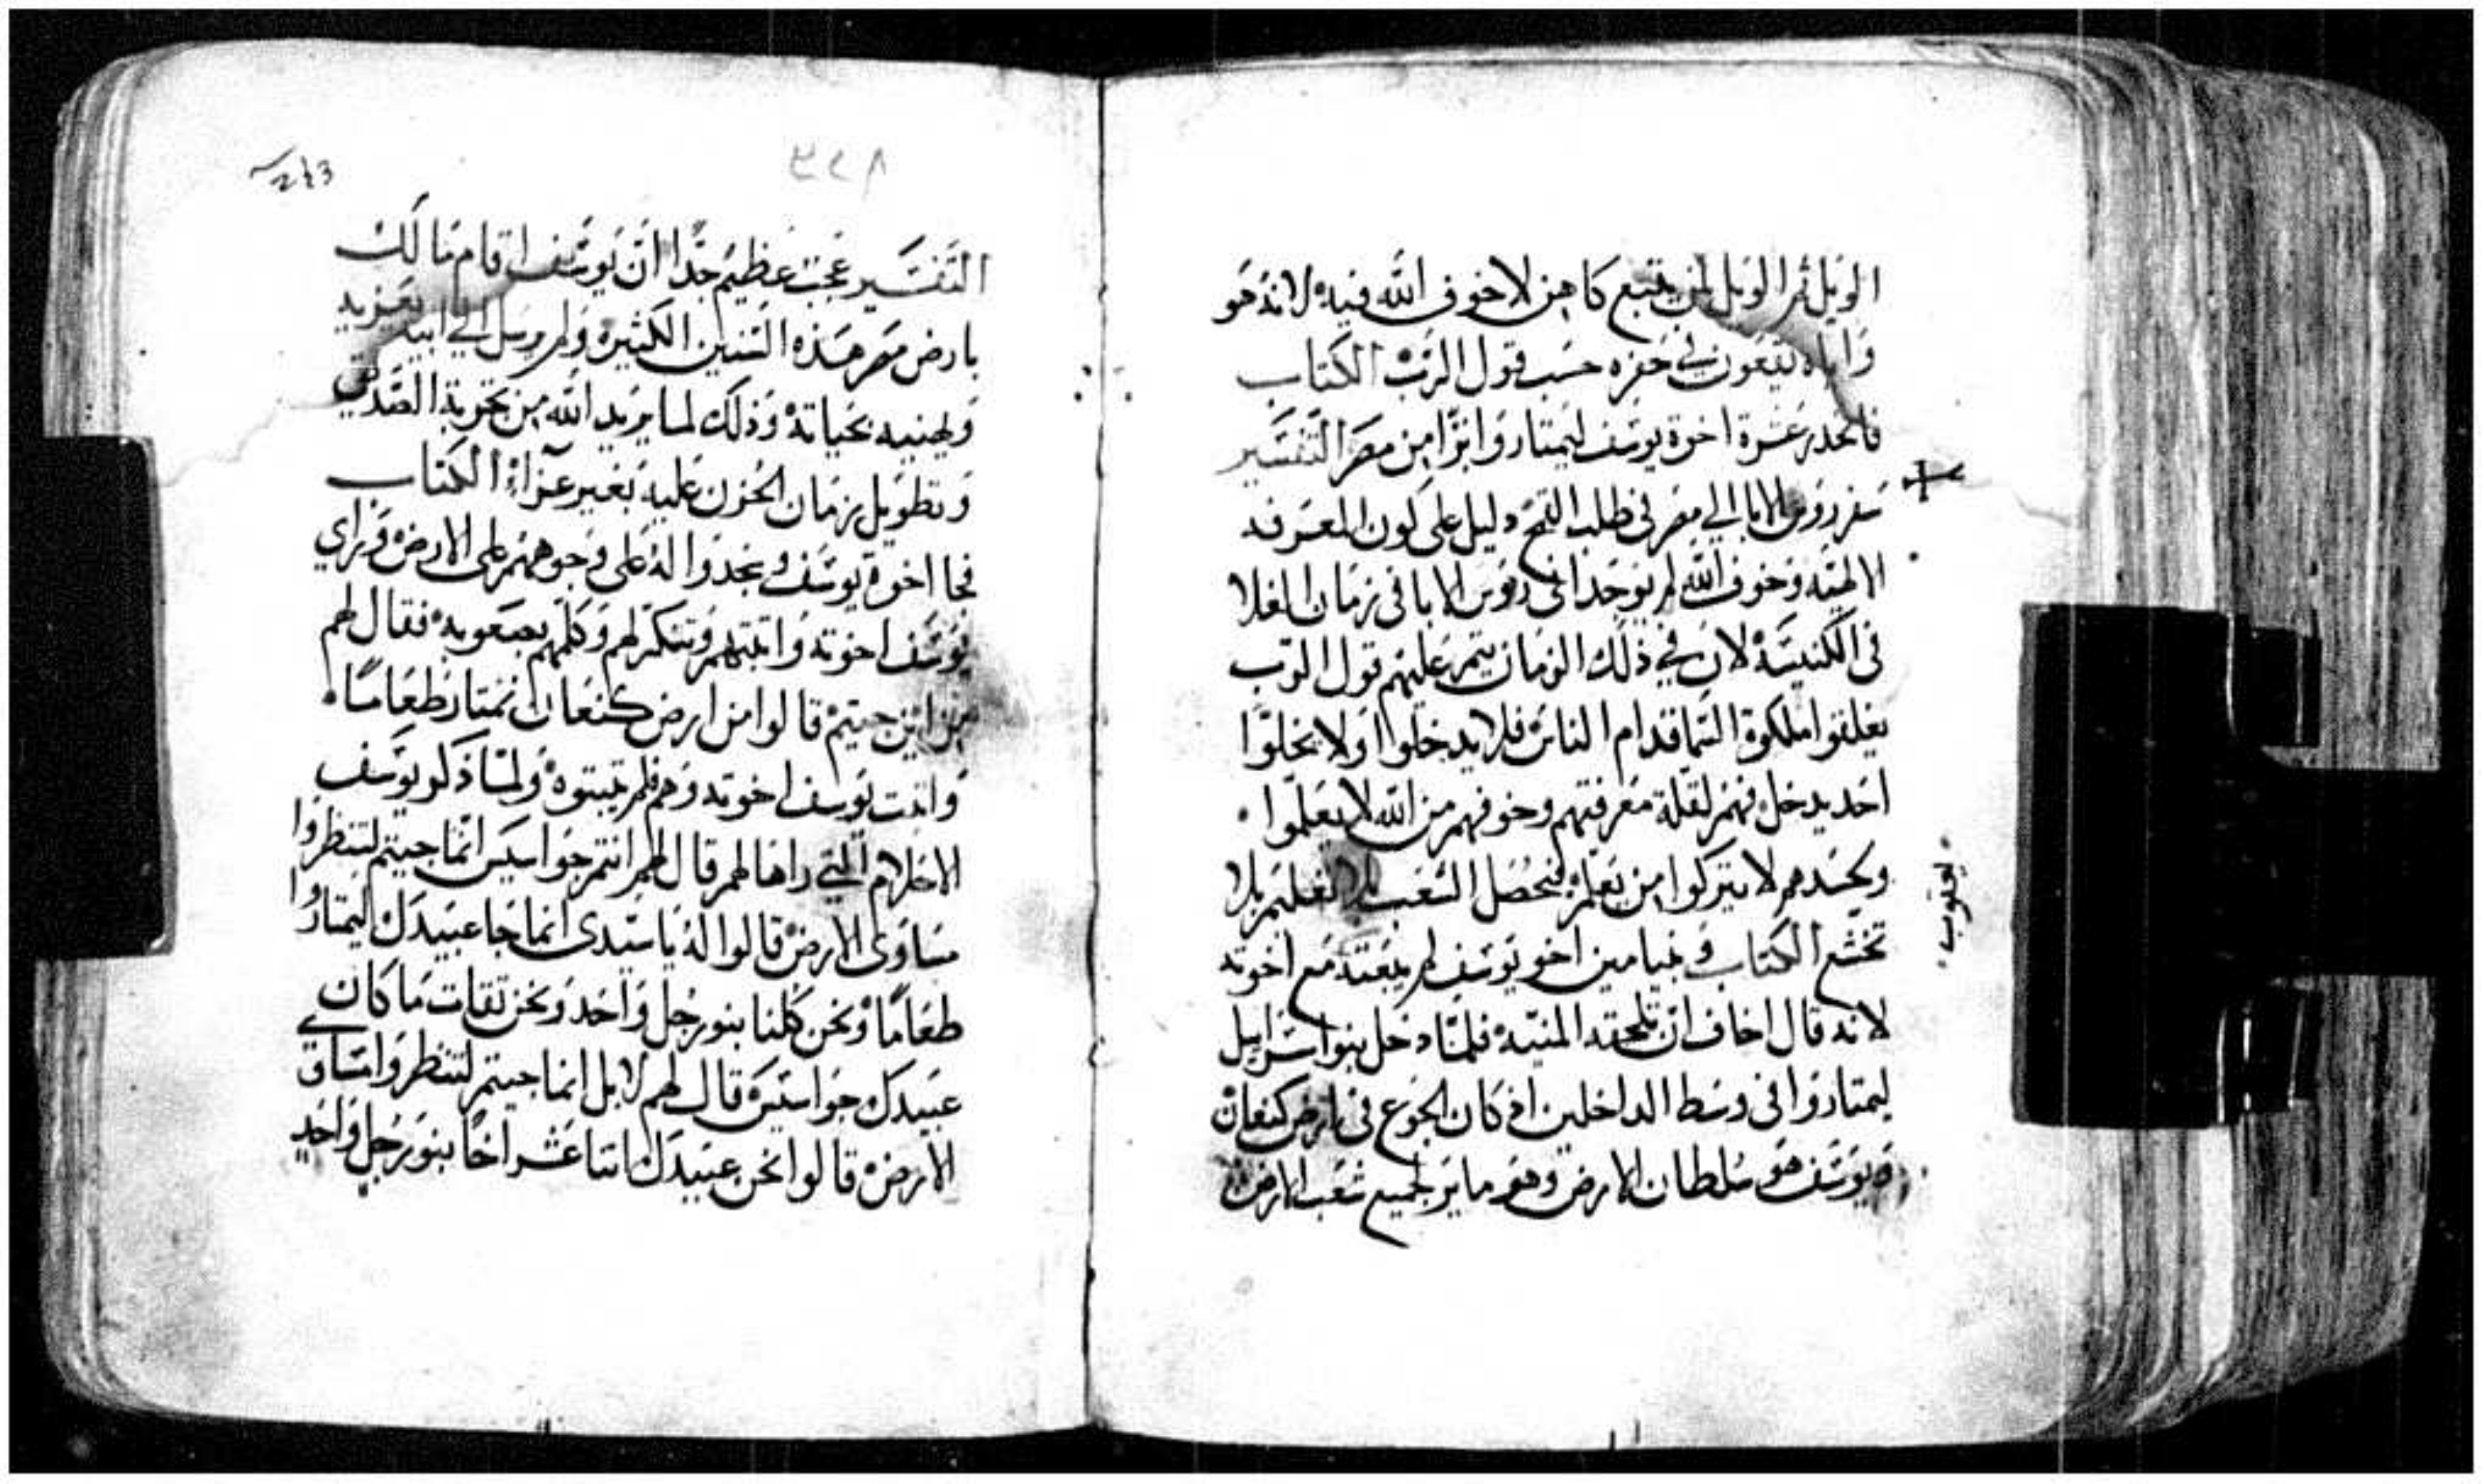 الويل ثم الويل لمن يتبع كاهن لاخوف الله فيه لانه هو
واياه يقعون في حفره حسب قول الرب الكتاب
فانحدر عشرة اخوة يوسف ليمتاروا برا من مصر التفسير
سفر روس الابا الي مصر في طلب القمح دليل على كون المعرفه
الالهيه وخوف الله لم يوجدا في روس الابا في زمان الغلا
في الكنيسة لان في ذلك الزمان يتم عليهم قول الرب
يغلقوا ملكوة السما قدام الناس فلا يدخلوا ولا يخلوا
احد يدخل فهم لقلة معرفتهم وخوفهم من الله لا يعلموا
وبحسدهم لا يتركوا من يعلم فيحصل الشعب بلا تعليم بلا
تخشع الكتاب و بنيامين اخو يوسف لم يبعته مع اخوته
لانه قال اخاف ان تلحقه المنيه فلما دخل بنو اسراييل
ليمتاروا في وسط الداخلين اذ كان الجوع في ارض كنعان
ويوسف هو سلطان الارض وهو ماير لجميع شعب الارض
يعقوب
243
٢٢٨
التفسير عجب عظيم جدا ان يوسف اقام مالك
بارض مصر هذه السنين الكثيره ولم يرسل الي ابيه بعزيه
ويهنيه بحياته وذلك لما يريد الله من تجربة الصديق
وتطويل زمان الحزن عليه بغير عزاء الكتاب
فجا اخوة يوسف وسجدوا له على وجوههم على الارض وراي
يوسف اخوته واثبتهم وتنكر لهم وكلمهم بصعوبه فقال لهم
من اين جيتم قالوا من ارض كنعان نمتار طعاما
واثبت يوسف اخوته وهم فلم يثبتوه ولما ذكر يوسف
الاحلام التي راها لهم قال لهم انتم جواسيس انما جيتم لتنظروا
مساوي الارض قالوا له يا سيدي انما جا عبيدك ليمتاروا
طعاما ونحن كلنا بنو رجل واحد ونحن ثقات ما كان
عبيدك جواسيس قال لهم لا بل انما جيتم لتنظروا اساق
الارض قالوا نحن عبيدك اثنا عشر اخا بنو رجل واحد في